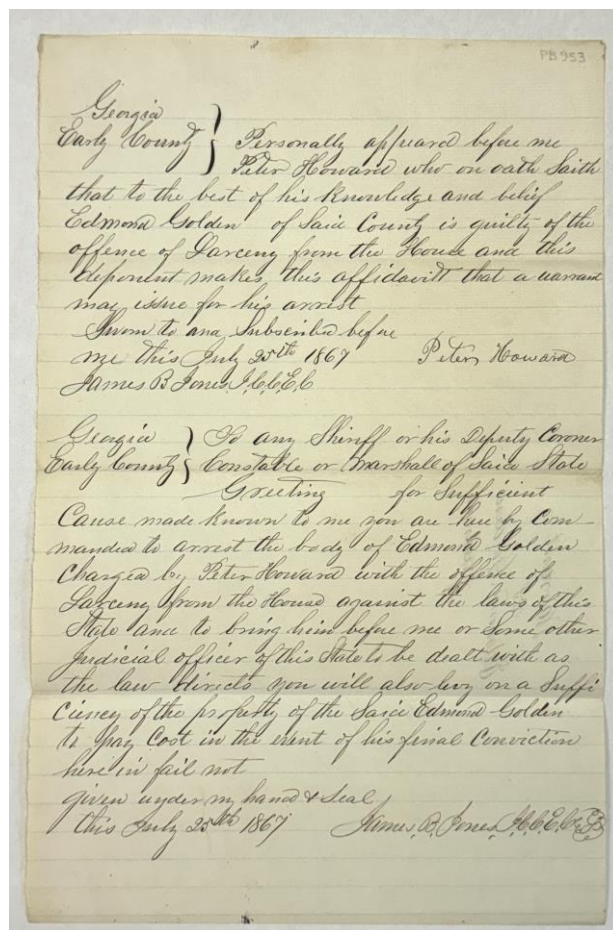 PB953
Georgia
Early County } Personally appeard before me
Peter Howard who on oath Saith
that to the best of his Knowledge and belief
Edmond Golden of Said County is guilty of the
offence of Larceny from the House and this
deponent makes this affidavitt that a warrant
may issue for his arrest
Sworn to and Subscribed before
me this July 25th 1867 Peter Howard
James B Jones J.C.C.E.C
Georgia } To any Shiriff or his Deputy Coroner
Early County } Constable or Marshall of Said State
Greeting for Sufficient
Cause made Known to me you are here by Com-
manded to arrest the body of Edmond Golden
Charged by Peter Howard with the offence of
Larceny from the House against the laws of this
State and to bring him before me or Some other
judicial officer of this State to be dealt with as
the law directs you will also levy on a Suffi
ciency of the property of the Said Edmond Golden
to pay Cost in the event of his final Conviction
here in fail not
given under my hand & Seal
this July 25th 1867 James B. Jones J.C.C.E.C. LS